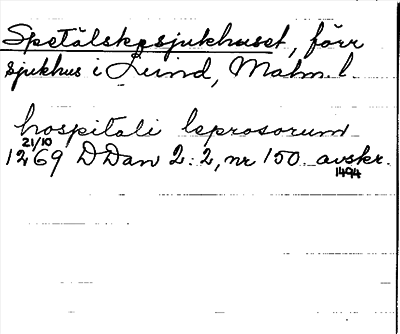 Spetälskesjukhuset, förr
sjukhus i Lund, Malm. l.
hospitali leprosorum
21/10
1269 DDan 2:2, nr 150 avskr.
1494